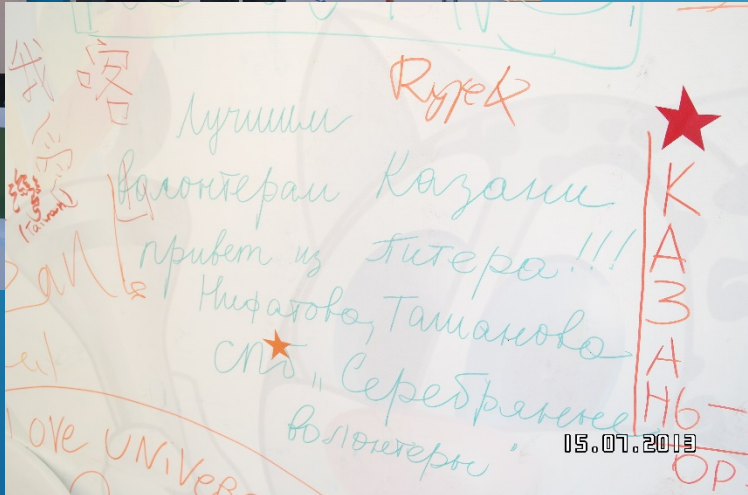 我 客
愛
(Taiwan)
Лучшим
волонтерам Казани
привет из Питера!!!
Нифатова, Ташанова
СПб „Серебрянные
волонтеры"
КАЗАНЬ
ОР
Love UNiVeR
15.07.2013